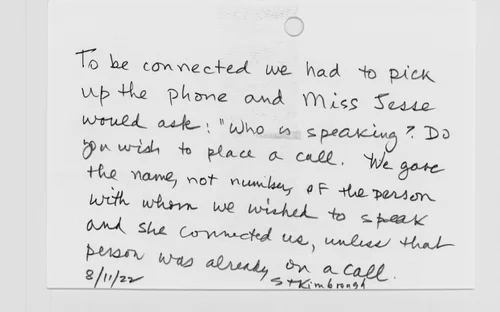 To be connected we had to pick
up the phone and Miss Jesse
would ask: "Who is speaking? Do
you wish to place a call. We gave
the name, not number, of the person
with whom we wished to speak
and she connected us, unless that
person was already on a call.
8/11/22 StKimbrough